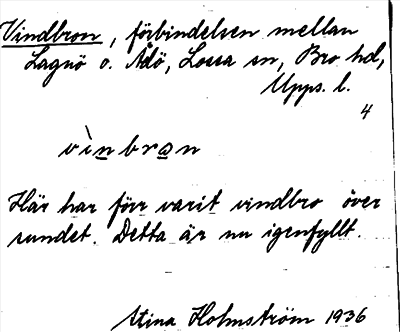 Vindbron, förbindelsen mellan
Lagnö o. Ådö, Lossa sn, Bro hd,
Upps. l.
4
vìnbron
Här har förr varit vindbro över
sundet. Detta är nu igenfyllt.
Stina Holmström 1936